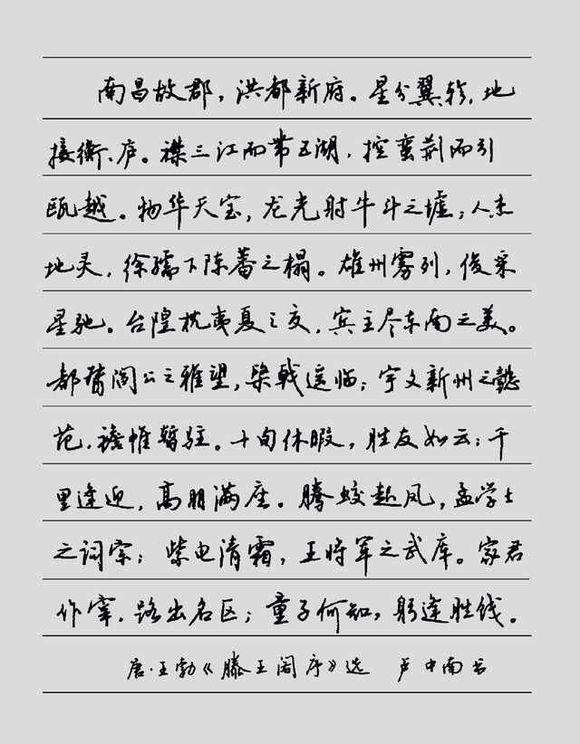 南昌故郡，洪都新府。星分翼轸，地
接衡、庐。襟三江而带五湖，控蛮荆而引
瓯越。物华天宝，龙光射牛斗之墟；人杰
地灵，徐孺下陈蕃之榻。雄州雾列，俊采
星驰。台隍枕夷夏之交，宾主尽东南之美。
都督阎公之雅望，棨戟遥临；宇文新州之懿
范，襜帷暂驻。十旬休暇，胜友如云；千
里逢迎，高朋满座。腾蛟起凤，孟学士
之词宗；紫电清霜，王将军之武库。家君
作宰，路出名区；童子何知，躬逢胜饯。
唐·王勃《滕王阁序》选 卢中南书